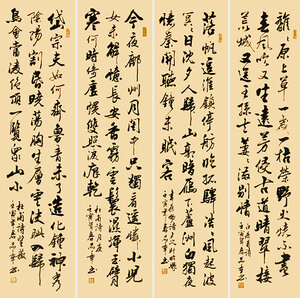 離離原上草一歲一枯榮野火燒不盡
春風吹又生遠芳侵古道晴翠接
荒城又送王孫去萋萋滿別情
落帆逗淮鎮停舫臨孤驛浩浩風起波
冥冥日沉夕人歸山郭暗雁下蘆洲白獨夜
憶秦關聽鐘未眠客
今夜鄜州月閨中只獨看遙憐小兒
女未解憶長安香霧雲鬟濕清輝玉臂
寒何時倚虛幌雙照淚痕乾
杜甫詩月夜
岱宗夫如何齊魯青未了造化鍾神秀
陰陽割昏曉蕩胸生層雲決眥入歸
鳥會當凌絕頂一覽眾山小
杜甫詩望嶽